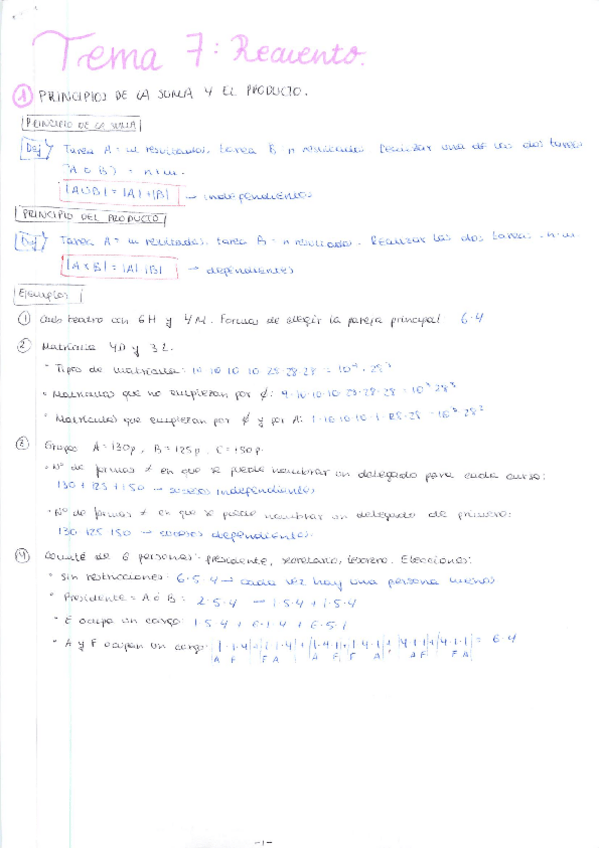 Tema 7: Recuento.
① PRINCIPIOS DE LA SUMA Y EL PRODUCTO.
PRINCIPIO DE LA SUMA
Def Tarea A = m resultados, tarea B, n resultados. Realizar una de las dos tareas
(A o B) = n+m.
|A∪B| = |A|+|B| → independientes
PRINCIPIO DEL PRODUCTO
Def Tarea A = m resultados, tarea B = n resultados. Realizar las dos tareas n·m.
|A×B| = |A|·|B| → dependientes
Ejemplos
① teatro con 6H y 4M. Formas de elegir la pareja principal 6·4
② Matrícula 4D y 3L.
· Tipos de matrícula: 10·10·10·10·28·28·28 = 10⁴·28³
· Matrículas que no empiezan por ∅: 9·10·10·10·28·28·28 = 28³
· Matrículas que empiezan por ∅ y por A: 1·10·10·10·1·28·28 = 10³·28²
③ Grupos A=130p, B=125p, C=150p.
· Nº de formas ≠ en que se puede nombrar un delegado para cada curso:
130+125+150 → sucesos independientes
· Nº de formas ≠ en que se puede nombrar un delegado de primero:
130·125·150 → sucesos dependientes.
④ Comité de 6 personas: presidente, secretario, tesorero. Elecciones:
· Sin restricciones: 6·5·4 → cada vez hay una persona menos
· Presidente = A ó B = 2·5·4 → 1·5·4 + 1·5·4
· E ocupa un cargo: 1·5·4 + 6·1·4 + 6·5·1
· A y F ocupan un cargo: |1·1·4|+|1·1·4|+|1·4·1|+|1·4·1|+|4·1·1|+|4·1·1| = 6·4
A F F A A F F A A F F A
-1-